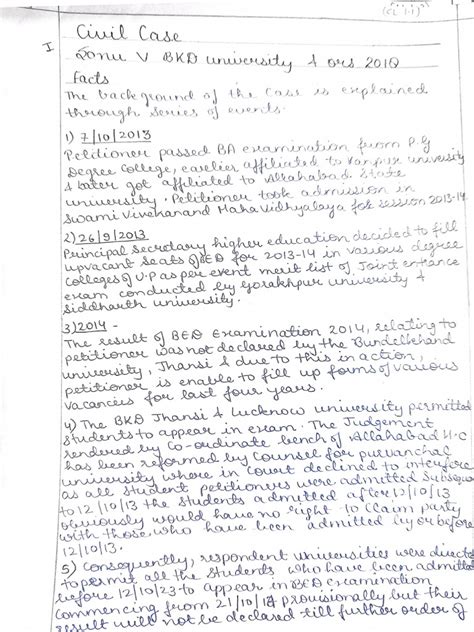 (CL 1.1)
Civil Case
I
Sonu V BKD university & ors 2018
facts
The background of the case is explained
through series of events.
1) 7/10/2013
Petitioner passed BA examination from P.G
Degree College, earlier affiliated to Kanpur university
& later got affiliated to Allahabad State
university. Petitioner took admission in
Swami Vivekanand Mahavidhyalaya for session 2013-14
2) 26/9/2013
Principal Secretary higher education decided to fill
up vacant seats of BED for 2013-14 in various degree
Colleges of U.P as per event merit list of Joint entrance
exam conducted by Gorakhpur university &
siddharth university.
3) 2014 -
The result of BED Examination 2014, relating to
petitioner was not declared by the Bundelkhand
university, Jhansi & due to this in action,
petitioner is enable to fill up forms of various
vacancies for last four years.
4) The BKD Jhansi & Lucknow university permitted
students to appear in exam. The Judgement
rendered by Co-ordinate bench of Allahabad H.C
has been reformed by Counsel for purvanchal
university where in Court declined to interfere
as all student petitioners were admitted subseque
to 12/10/13 the students admitted after 12/10/13
obviously would have no right to claim party
with those who have been admitted by or before
12/10/13.
5) Consequently, respondent universities were directe
to permit all the students who have been admitted
before 12/10/23 to appear in BED examination
commencing from 21/10/14 provisionally but their
result will not be declared till further order of